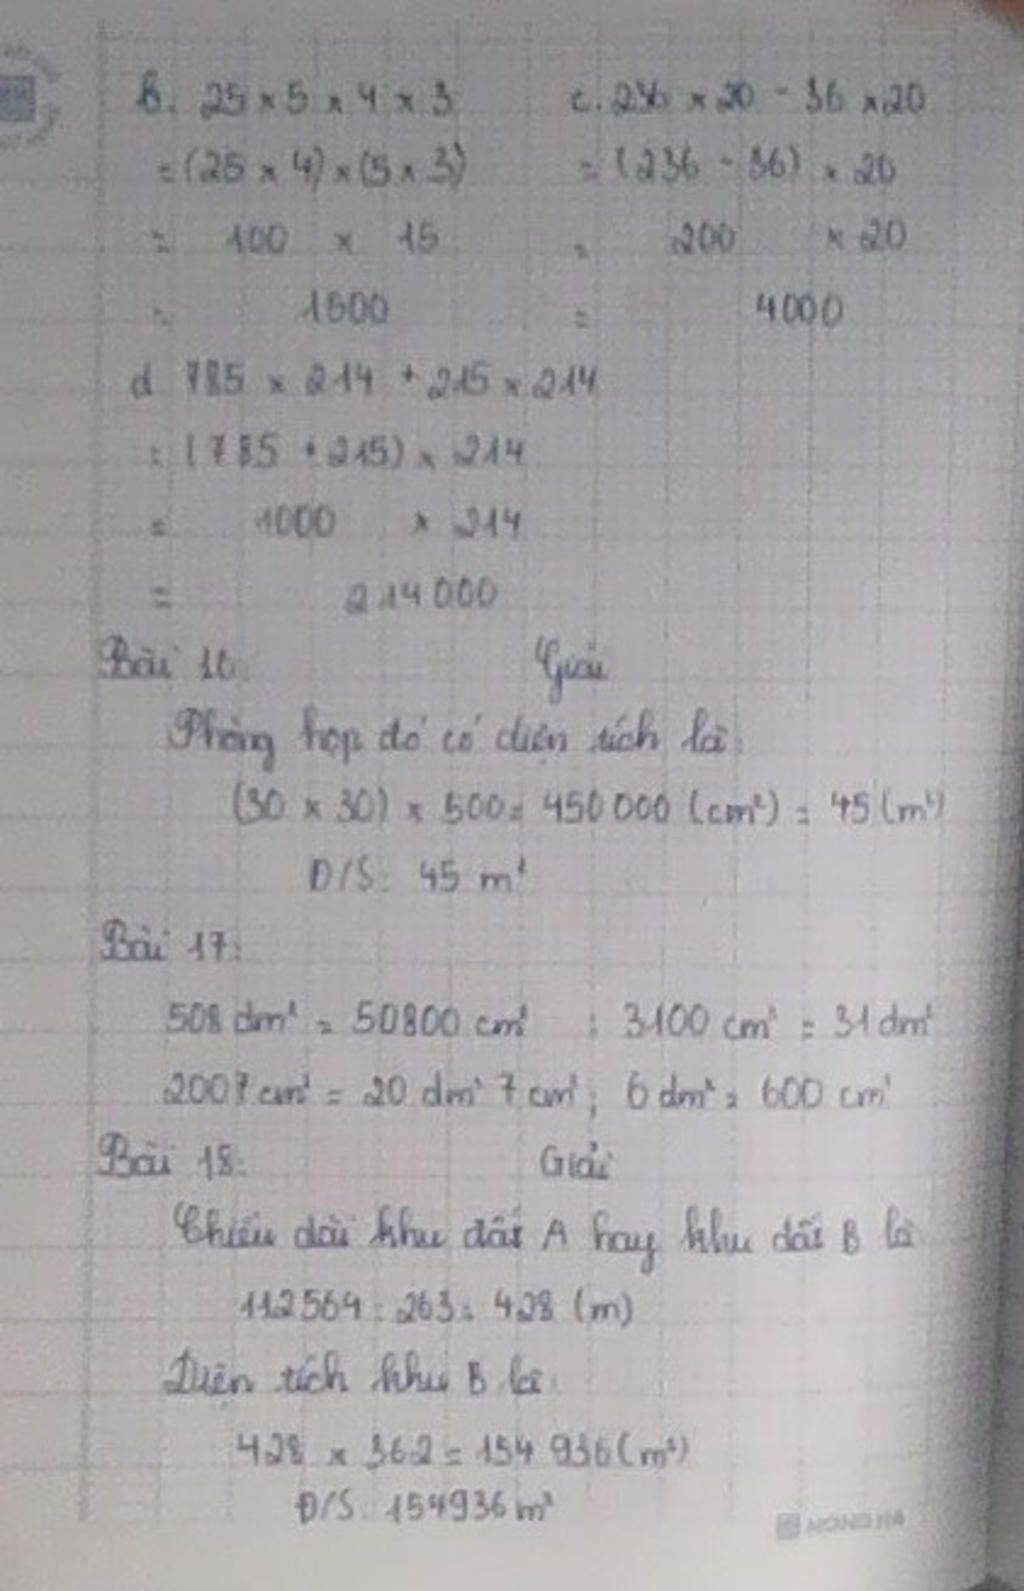 b. 25 × 5 × 4 × 3
= (25 × 4) × (5 × 3)
= 100 × 15
= 1500
c. 236 × 20 - 36 × 20
= (236 - 36) × 20
= 200 × 20
= 4000
d 785 × 214 + 215 × 214
= (785 + 215) × 214
= 1000 × 214
= 214000
Bài 16: Giải
Phòng họp đó có diện tích là:
(30 × 30) × 500 = 450 000 (cm²) = 45 (m²)
Đ/S: 45 m²
Bài 17:
508 dm² = 50800 cm² ; 3100 cm² = 31 dm²
2007 cm² = 20 dm² 7 cm² ; 6 dm² = 600 cm²
Bài 18: Giải
Chiều dài khu đất A hay khu đất B là
112564 : 263 = 428 (m)
Diện tích khu B là:
428 × 362 = 154 936 (m²)
Đ/S: 154936 m²
HONG HA